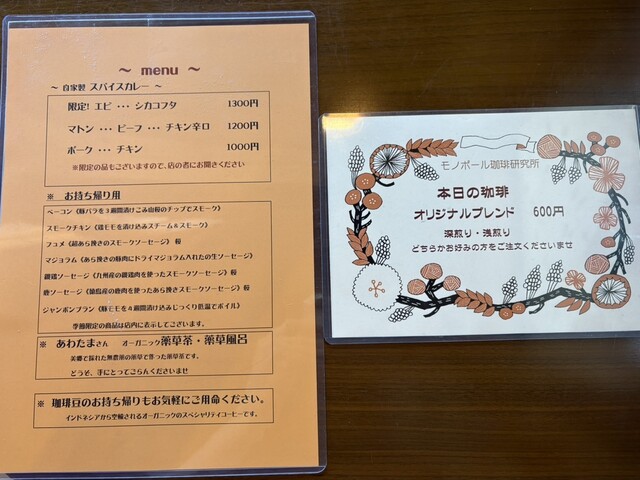 ～ menu ～
～ 自家製 スパイスカレー ～
限定! エビ ・・・ シカコフタ 1300円
マトン ・・・ ビーフ ・・・ チキン辛口 1200円
ポーク ・・・ チキン 1000円
※限定の品もございますので、店の者にお聞きください
※ お持ち帰り用
ベーコン《豚バラを3週間漬けこみ山桜のチップでスモーク》
スモークチキン《鶏モモを漬け込みスチーム&スモーク》
フュメ《超あら挽きのスモークソーセージ》 桜
マジョラム《あら挽きの豚肉にドライマジョラム入れた生ソーセージ》
親鶏ソーセージ《九州産の親鶏肉を使ったスモークソーセージ》 桜
鹿ソーセージ《徳島産の鹿肉を使ったあら挽きスモークソーセージ》 桜
ジャンボンブラン《豚モモを4週間漬け込みじっくり低温でボイル》
季節限定の商品は店内に表示してございます。
※ あわたまさん オーガニック薬草茶・薬草風呂
美郷で採れた無農薬の薬草で作った薬草茶です。
どうぞ、手にとってごらんくださいませ
※ 珈琲豆のお持ち帰りもお気軽にご用命ください。
インドネシアから空輸されるオーガニックのスペシャリティコーヒーです。
モノポール珈琲研究所
本日の珈琲
オリジナルブレンド 600円
深煎り・浅煎り
どちらかお好みの方をご注文くださいませ